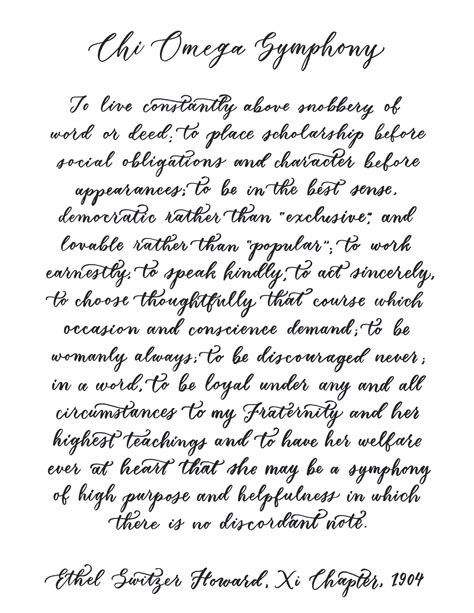 Chi Omega Symphony
To live constantly above snobbery of
word or deed; to place scholarship before
social obligations and character before
appearances; to be in the best sense,
democratic rather than "exclusive"; and
lovable rather than "popular"; to work
earnestly, to speak kindly, to act sincerely,
to choose thoughtfully that course which
occasion and conscience demand; to be
womanly always; to be discouraged never;
in a word, to be loyal under any and all
circumstances to my Fraternity and her
highest teachings and to have her welfare
ever at heart that she may be a symphony
of high purpose and helpfulness in which
there is no discordant note.
Ethel Switzer Howard, Xi Chapter, 1904